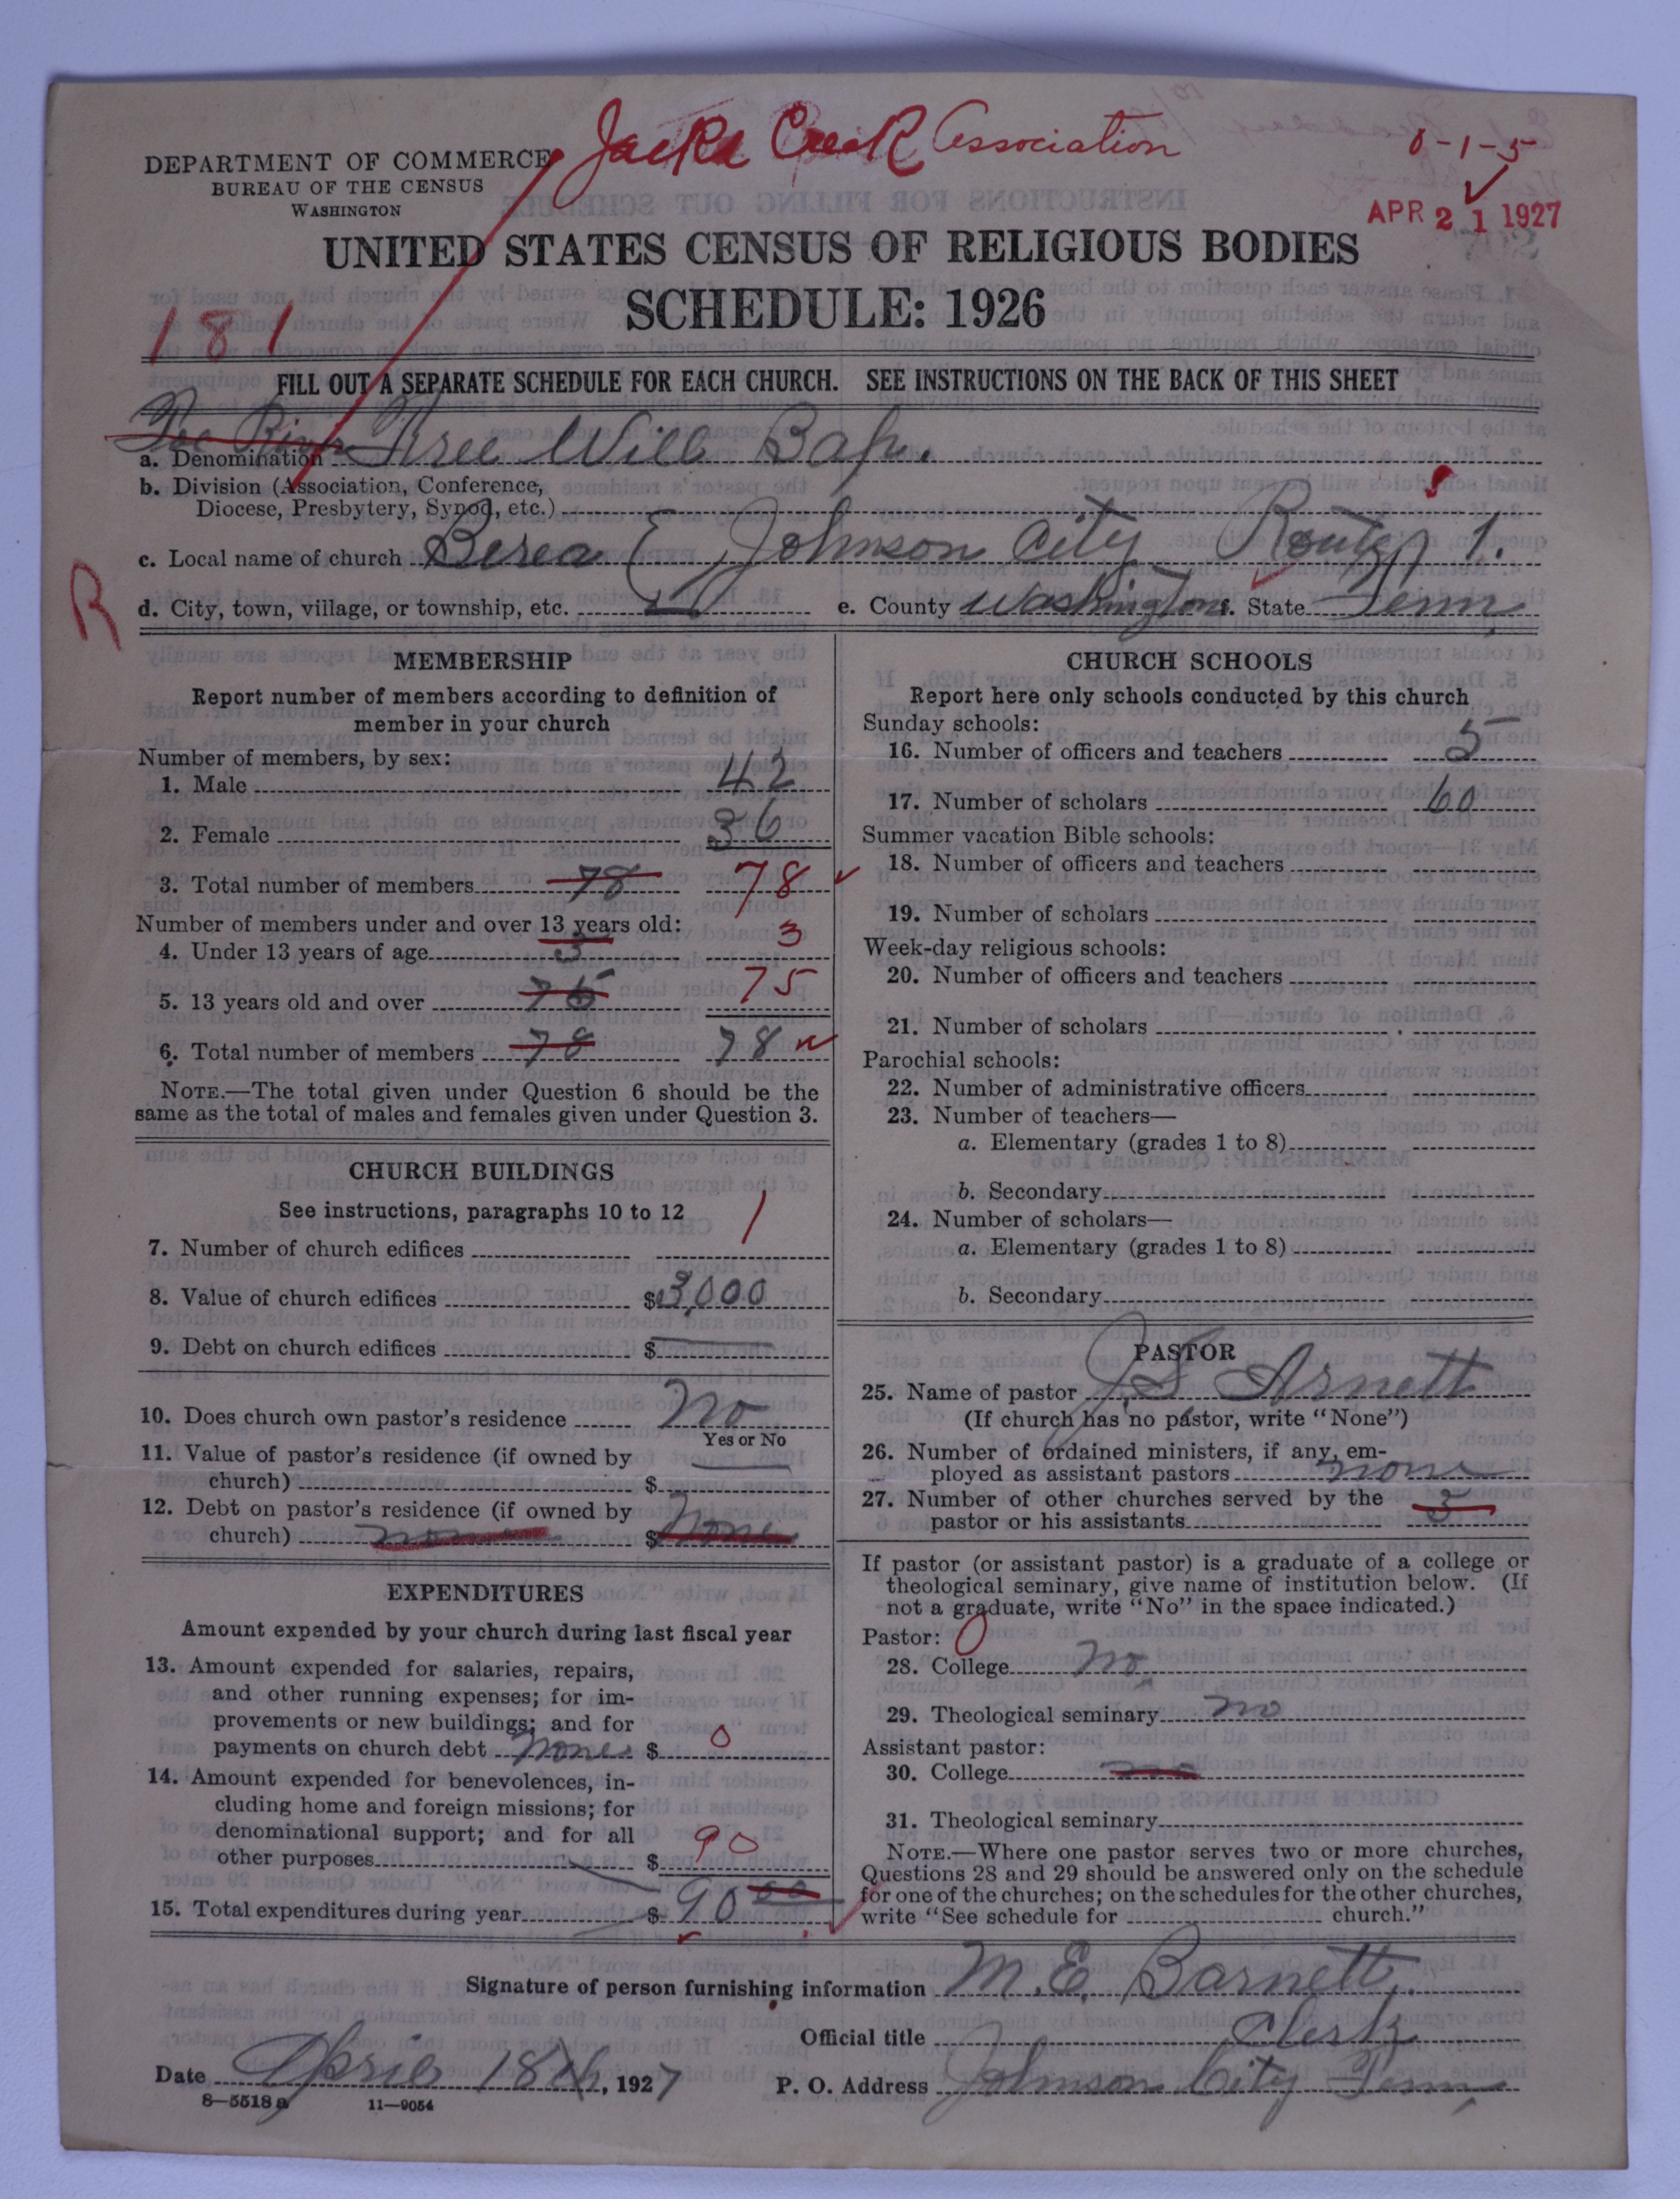 Jacks Creek Association
8-1-5
DEPARTMENT OF COMMERCE
BUREAU OF THE CENSUS
WASHINGTON
APR 21 1927
UNITED STATES CENSUS OF RELIGIOUS BODIES
SCHEDULE: 1926
181
FILL OUT A SEPARATE SCHEDULE FOR EACH CHURCH. SEE INSTRUCTIONS ON THE BACK OF THIS SHEET
Toe River
a. Denomination Free Will Bap.
b. Division (Association, Conference,
Diocese, Presbytery, Synod, etc.)
c. Local name of church Berea Johnson City Route 1.
R
d. City, town, village, or township, etc. e. County Washington. State Tenn,
MEMBERSHIP
Report number of members according to definition of
member in your church
Number of members, by sex:
1. Male 42
2. Female 36
3. Total number of members 78 78
Number of members under and over 13 years old:
4. Under 13 years of age 3 3
5. 13 years old and over 75 75
6. Total number of members 78 78
NOTE.—The total given under Question 6 should be the
same as the total of males and females given under Question 3.
CHURCH BUILDINGS
See instructions, paragraphs 10 to 12
7. Number of church edifices 1
8. Value of church edifices $3,000
9. Debt on church edifices $
10. Does church own pastor's residence No
Yes or No
11. Value of pastor's residence (if owned by
church) $
12. Debt on pastor's residence (if owned by
church) none $ None
EXPENDITURES
Amount expended by your church during last fiscal year
13. Amount expended for salaries, repairs,
and other running expenses; for im-
provements or new buildings; and for
payments on church debt None $ 0
14. Amount expended for benevolences, in-
cluding home and foreign missions; for
denominational support; and for all
other purposes $ 90
15. Total expenditures during year $ 90 00
CHURCH SCHOOLS
Report here only schools conducted by this church
Sunday schools:
16. Number of officers and teachers 5
17. Number of scholars 60
Summer vacation Bible schools:
18. Number of officers and teachers
19. Number of scholars
Week-day religious schools:
20. Number of officers and teachers
21. Number of scholars
Parochial schools:
22. Number of administrative officers
23. Number of teachers—
a. Elementary (grades 1 to 8)
b. Secondary
24. Number of scholars—
a. Elementary (grades 1 to 8)
b. Secondary
PASTOR
25. Name of pastor J. S. Arnett
(If church has no pastor, write "None")
26. Number of ordained ministers, if any, em-
ployed as assistant pastors none
27. Number of other churches served by the
pastor or his assistants 3
If pastor (or assistant pastor) is a graduate of a college or
theological seminary, give name of institution below. (If
not a graduate, write "No" in the space indicated.)
Pastor: 0
28. College no
29. Theological seminary no
Assistant pastor:
30. College no
31. Theological seminary
NOTE.—Where one pastor serves two or more churches,
Questions 28 and 29 should be answered only on the schedule
for one of the churches; on the schedules for the other churches,
write "See schedule for church."
Signature of person furnishing information M. E. Barnett,
Official title Clerk
Date April 18th, 1927 P. O. Address Johnson City Tenn,
8—5518 a 11—9054